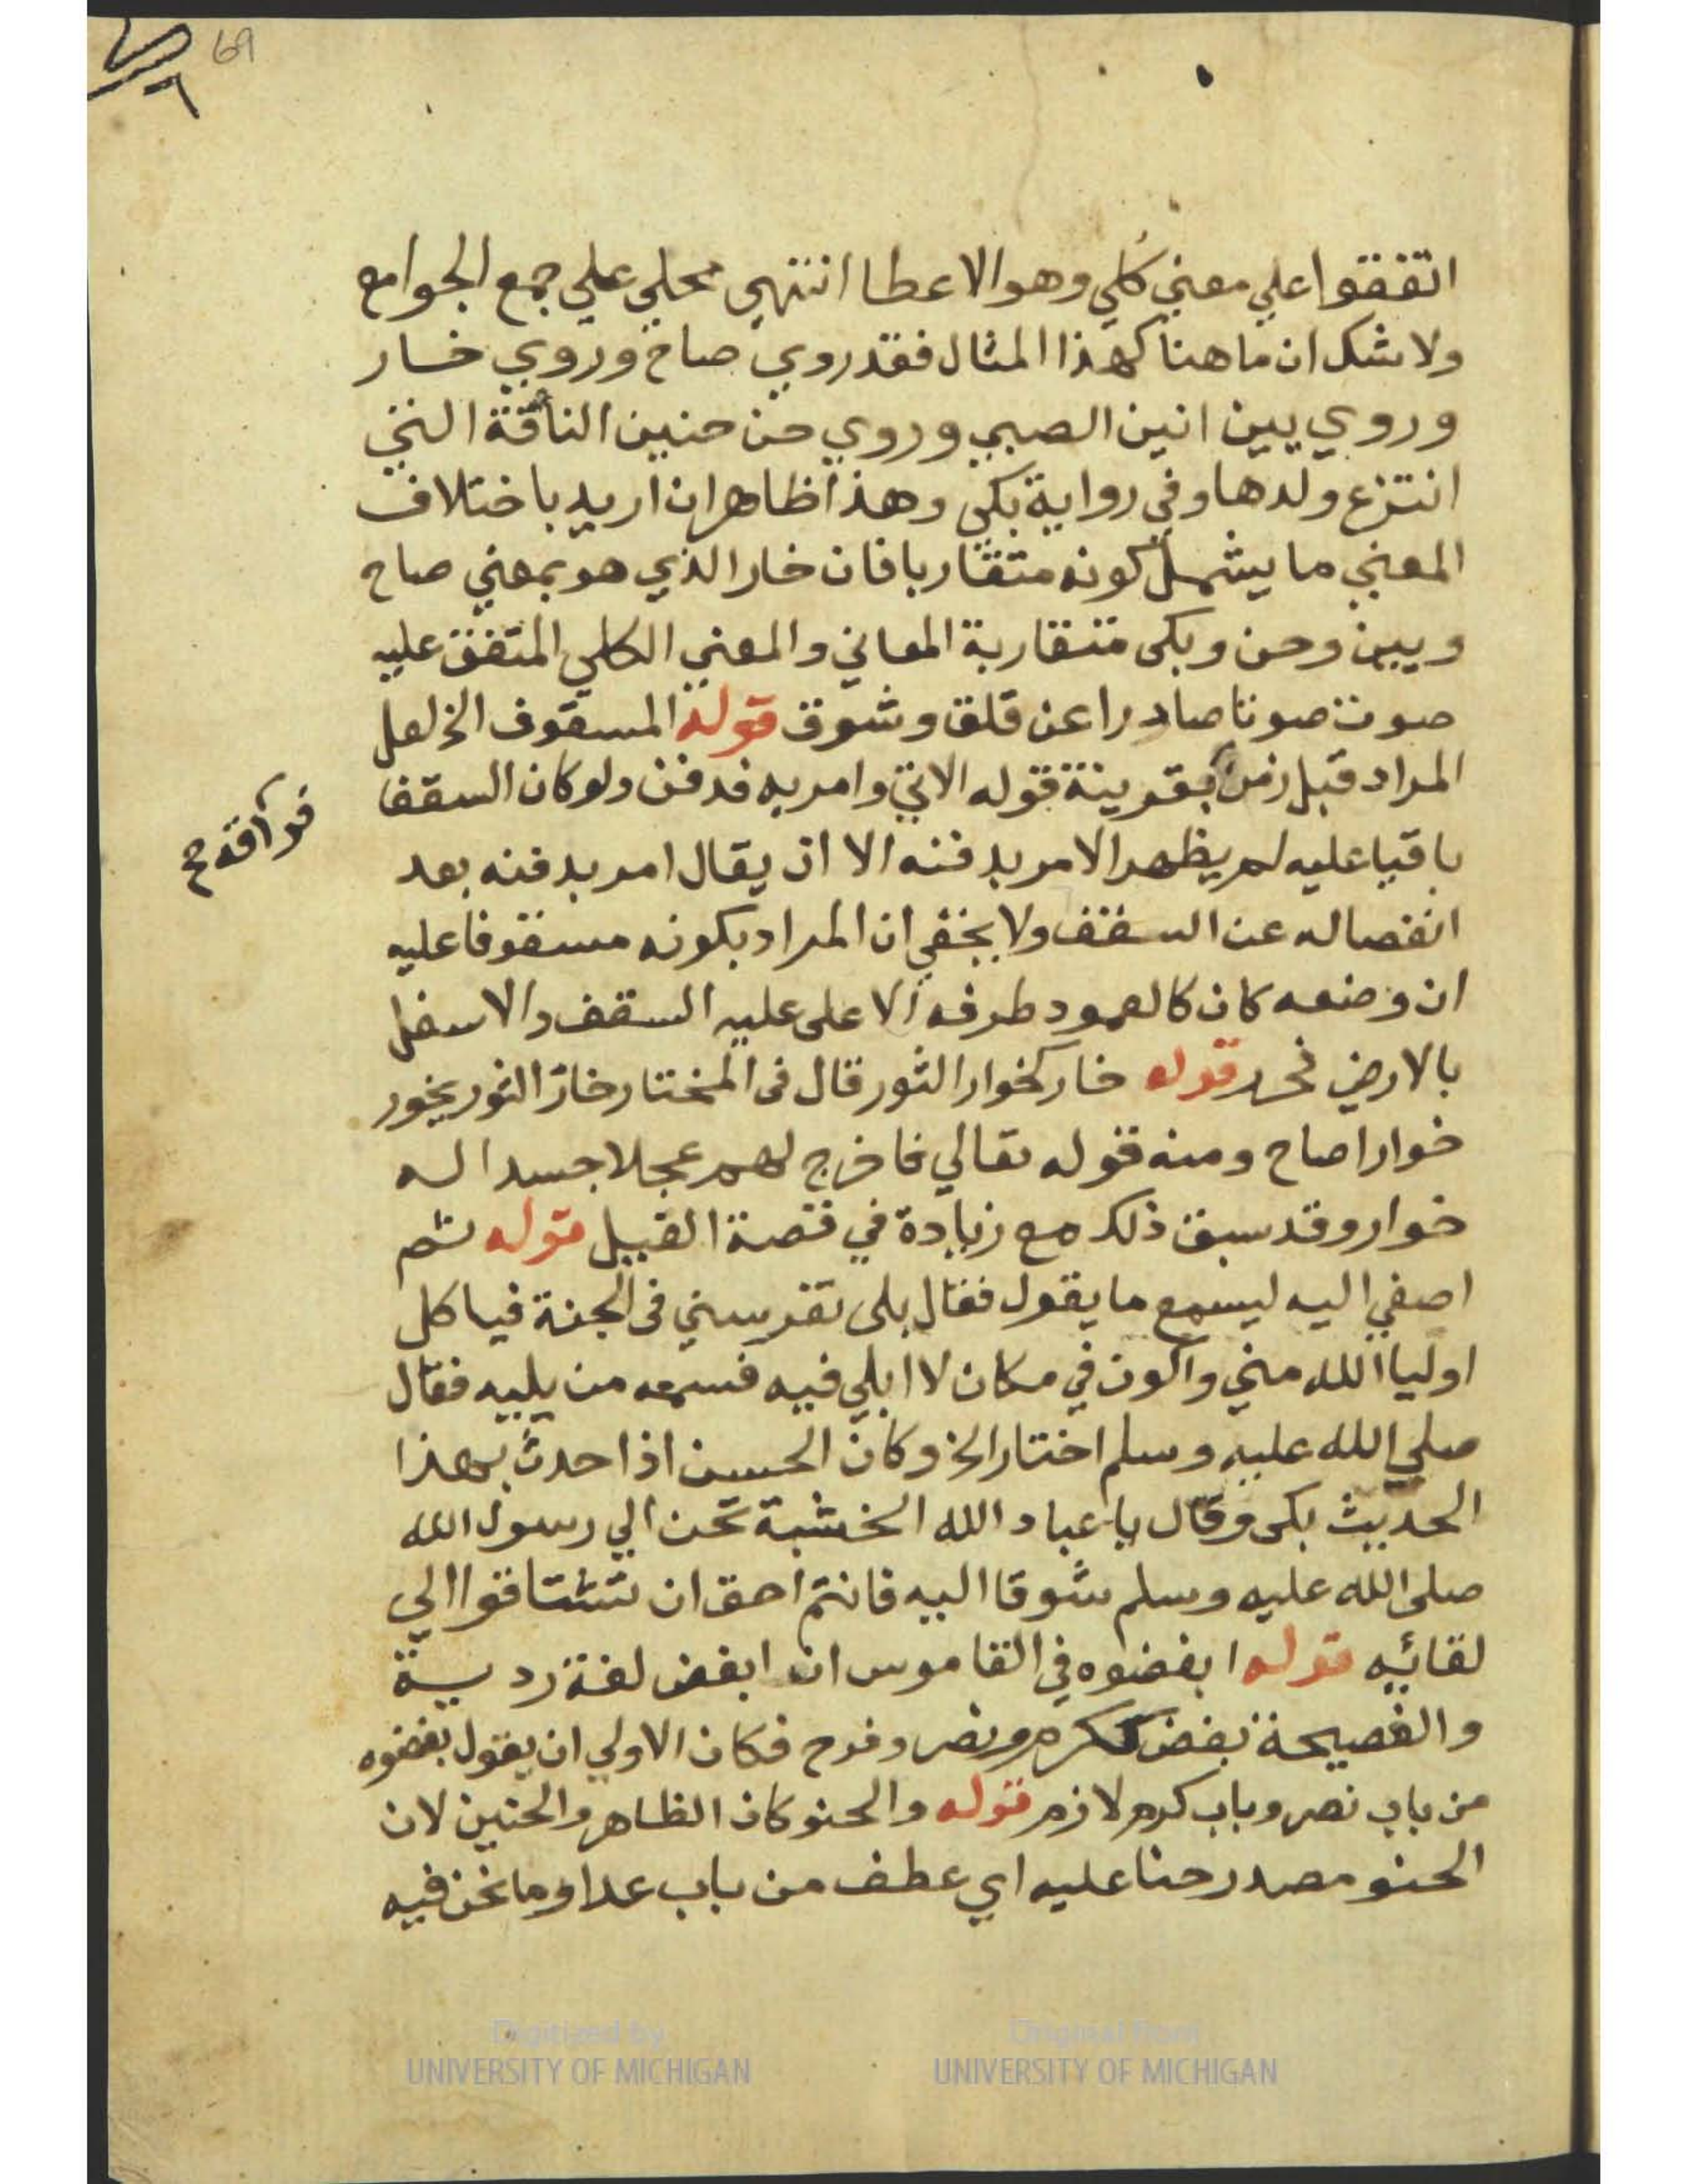 69
اتفقوا علي معني كلي وهو الاعطا انتهي محلي علي جمع الجوامع
ولا شك ان ما هنا كهذا المثال فقد روي صاح وروي خار
وروي يين انين الصبي وروي حن حنين الناقة التي
انتزع ولدها وفي رواية بكي وهذا ظاهر ان اريد باختلاف
المعني ما يشمل كونه متقاربا فان خار الذي هو بمعني صاح
ويين وحن وبكى متقاربة المعاني والمعني الكلي المتفق عليه
صوت صوتا صادرا عن قلق وشوق قوله المسقوف الخ لعل
المراد قبل زمن بقرينة قوله الاتي وامر به فدفن ولو كان السقف
فراقه ح
باقيا عليه لم يظهر الامر بدفنه الا ان يقال امر بدفنه بعد
انفصاله عن السقف ولا يخفي ان المراد بكونه مسقوفا عليه
ان وضعه كان كالعمود طرفه الاعلى عليه السقف والاسفل
بالارض فحرر قوله خار كخوار الثور قال في المختار خار الثور يخور
خوارا صاح ومنه قوله تعالي فاخرج لهم عجلا جسدا له
خوار وقد سبق ذلك مع زيادة في قصة القبيل قوله ثم
اصغي اليه ليسمع ما يقول فقال بلى تغرسني في الجنة فياكل
اوليا الله مني واكون في مكان لا ابلي فيه فسمعه من يليه فقال
صلي الله عليه وسلم اختار الخ وكان الحسن اذا حدث بهذا
الحديث بكى وقال يا عباد الله الخشبة تحن الي رسول الله
صلى الله عليه وسلم شوقا اليه فانتم احق ان تشتاقوا الي
لقائيه قوله ابغضوه في القاموس ان ابغض لغة ردية
والفصيحة بغض ككرم ونصر وفرح فكان الاولي ان يقول بغضوه
من باب نصر وباب كرم لازم قوله والحنو كان الظاهر والحنين لان
الحنو مصدر حنا عليه اي عطف من باب عدا وما نحن فيه
Digitized by
UNIVERSITY OF MICHIGAN
Original from
UNIVERSITY OF MICHIGAN